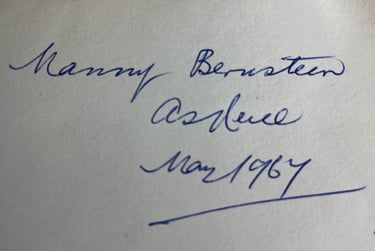 Manny Bernstein
May 1967